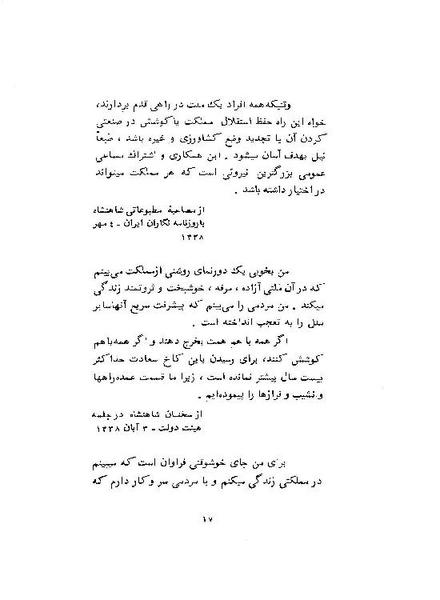 وقتیکه همه افراد یک ملت در راهی قدم بردارند،
خواه این راه حفظ استقلال مملکت یا کوشش در صنعتی
کردن آن یا تجدید وضع کشاورزی و غیره باشد ، طبعاً
نیل بهدف آسان میشود . این همکاری و اشتراک مساعی
عمومی بزرگترین نیروئی است که هر مملکت میتواند
در اختیار داشته باشد .
از مصاحبهٔ مطبوعاتی شاهنشاه
باروزنامه نگاران ایران - ٤ مهر
۱۳۳۸
من بخوبی یک دورنمای روشنی ازمملکت می‌بینم
که در آن ملتی آزاده ، مرفه ، خوشبخت و ثروتمند زندگی
میکند . من مردمی را می‌بینم که پیشرفت سریع آنهاسایر
ملل را به تعجب انداخته است .
اگر همه با هم همت بخرج دهند و اگر همه‌باهم
کوشش کنند، برای رسیدن باین کاخ سعادت حداکثر
بیست سال بیشتر نمانده است ، زیرا ما قسمت عمده‌راهها
ونشیب و فرازها را پیموده‌ایم .
از سخنان شاهنشاه درجلسه
هیئت دولت - ۳ آبان ۱۳۳۸
برای من جای خوشوقتی فراوان است که میبینم
در مملکتی زندگی میکنم و با مردمی سر و کار دارم که
۱۷